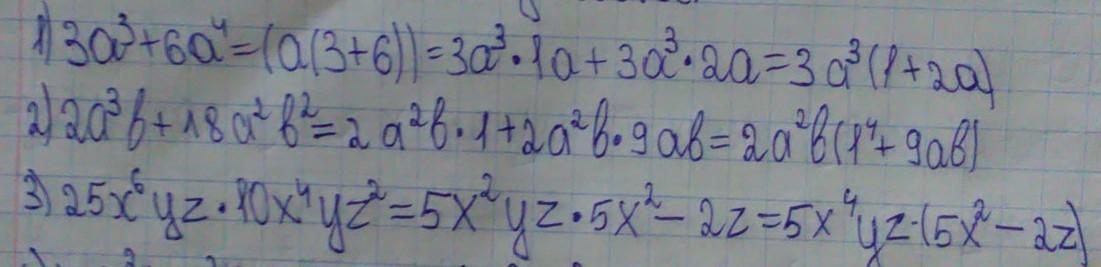 1) 3a³+6a⁴=(a(3+6))=3a³·1a+3a³·2a=3a³(1+2a)
2) 2a³b+18a²b²=2a²b·1+2a²b·9ab=2a²b(1⁴+9ab)
3) 25x⁶yz·10x⁴yz²=5x²yz·5x²-2z=5x⁴yz·(5x²-2z)